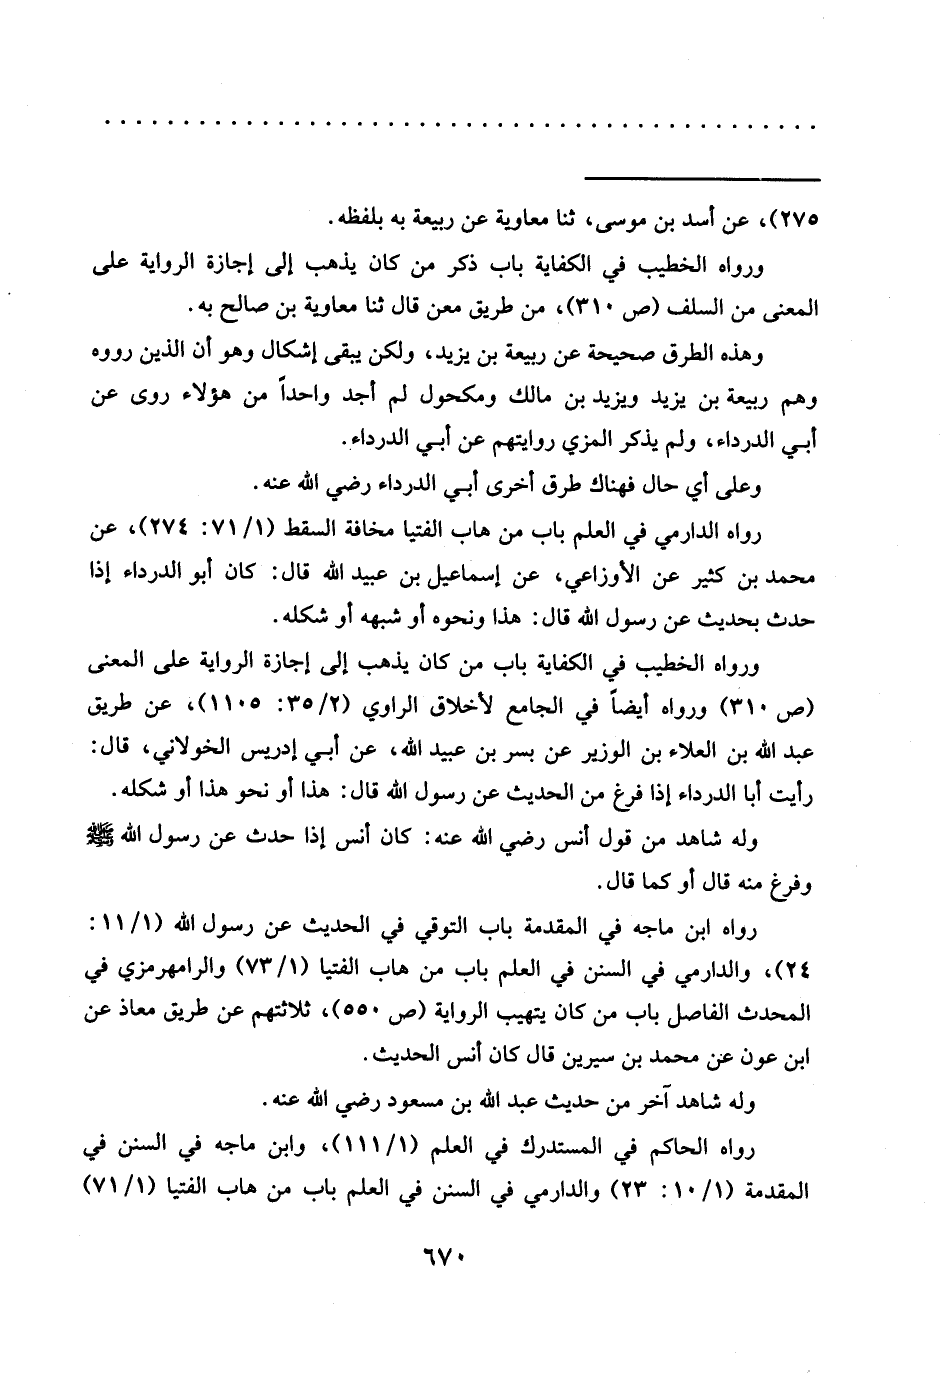 ٢٧٥)، عن أسد بن موسى، ثنا معاوية عن ربيعة به بلفظه.
ورواه الخطيب في الكفاية باب ذكر من كان يذهب إلى إجازة الرواية على
المعنى من السلف (ص ٣١٠)، من طريق معن قال ثنا معاوية بن صالح به.
وهذه الطرق صحيحة عن ربيعة بن يزيد، ولكن يبقى إشكال وهو أن الذين رووه
وهم ربيعة بن يزيد ويزيد بن مالك ومكحول لم أجد واحداً من هؤلاء روى عن
أبي الدرداء، ولم يذكر المزي روايتهم عن أبي الدرداء.
وعلى أي حال فهناك طرق أخرى أبي الدرداء رضي الله عنه.
رواه الدارمي في العلم باب من هاب الفتيا مخافة السقط (٧١/١: ٢٧٤)، عن
محمد بن كثير عن الأوزاعي، عن إسماعيل بن عبيد الله قال: كان أبو الدرداء إذا
حدث بحديث عن رسول الله قال: هذا ونحوه أو شبهه أو شكله.
ورواه الخطيب في الكفاية باب من كان يذهب إلى إجازة الرواية على المعنى
(ص ٣١٠) ورواه أيضاً في الجامع لأخلاق الراوي (٣٥/٢: ١١٠٥)، عن طريق
عبد الله بن العلاء بن الوزير عن بسر بن عبيد الله، عن أبي إدريس الخولاني، قال:
رأيت أبا الدرداء إذا فرغ من الحديث عن رسول الله قال: هذا أو نحو هذا أو شكله.
وله شاهد من قول أنس رضي الله عنه: كان أنس إذا حدث عن رسول الله ﷺ
وفرغ منه قال أو كما قال.
رواه ابن ماجه في المقدمة باب التوقي في الحديث عن رسول الله (١١/١:
٢٤)، والدارمي في السنن في العلم باب من هاب الفتيا (٧٣/١) والرامهرمزي في
المحدث الفاصل باب من كان يتهيب الرواية (ص ٥٥٠)، ثلاثتهم عن طريق معاذ عن
ابن عون عن محمد بن سيرين قال كان أنس الحديث.
وله شاهد آخر من حديث عبد الله بن مسعود رضي الله عنه.
رواه الحاكم في المستدرك في العلم (١١١/١)، وابن ماجه في السنن في
المقدمة (١٠/١: ٢٣) والدارمي في السنن في العلم باب من هاب الفتيا (٧١/١)
٦٧٠